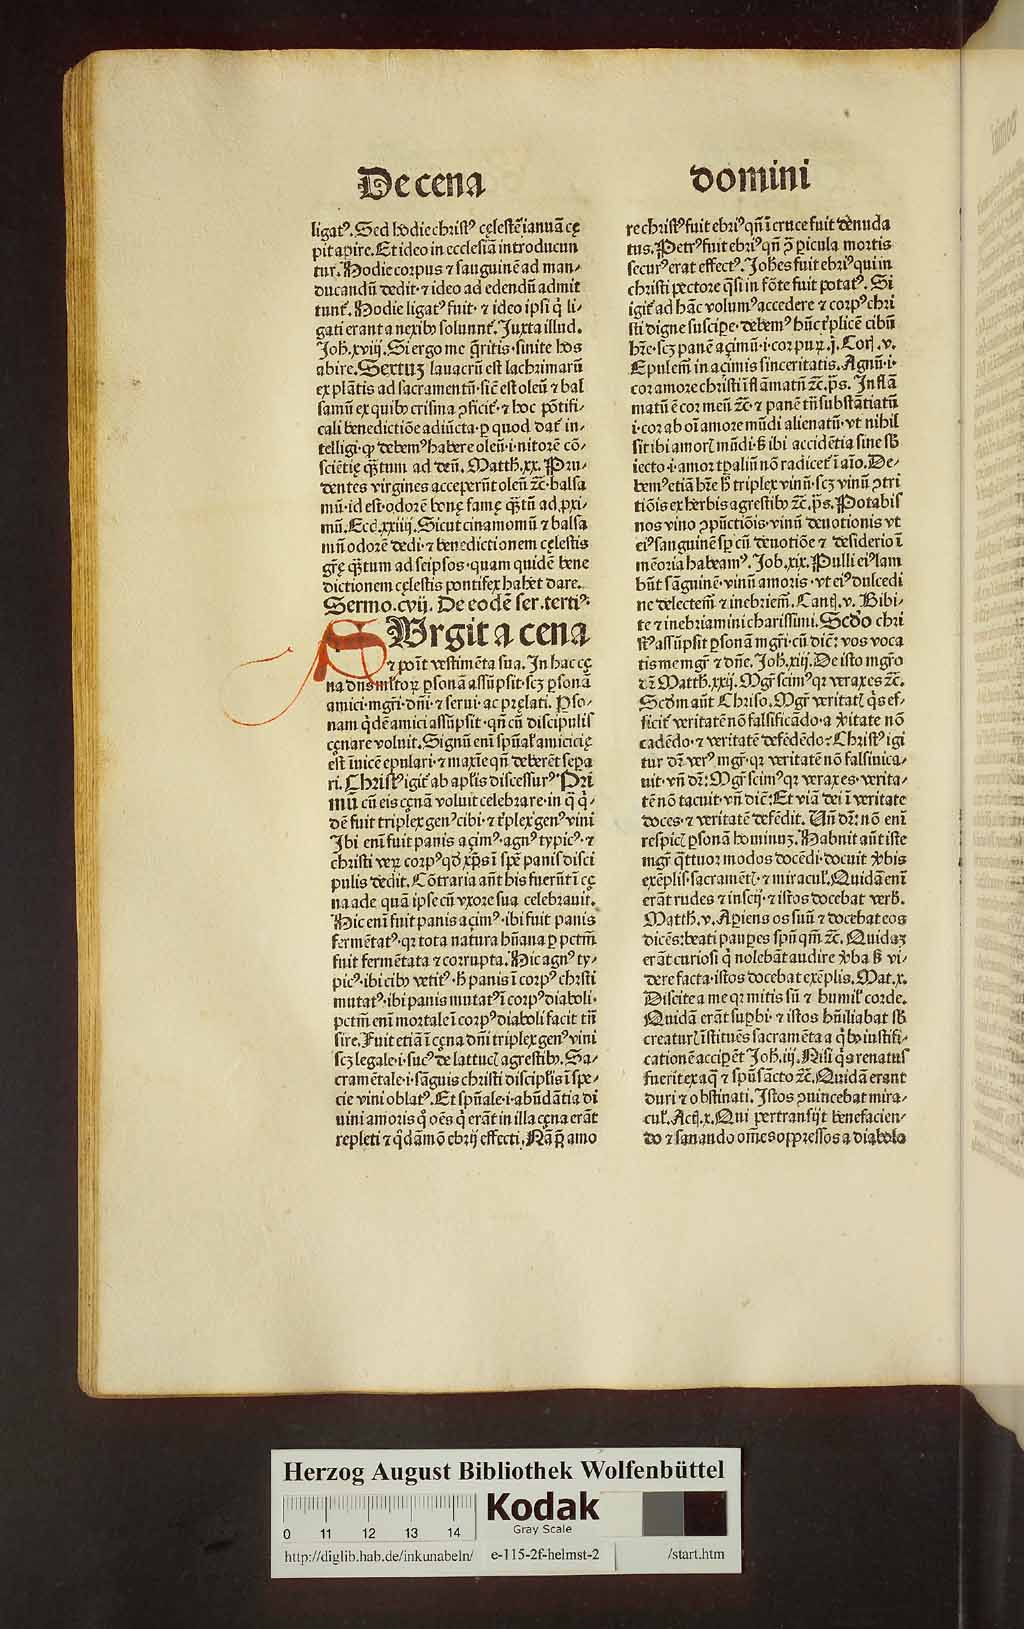 De cena
domini
ligatꝰ. Sed hodie christꝰ cęlestē ianuā cę
pit apire. Et ideo in ecclesiā introducun
tur. Hodie corpus ⁊ sanguinē ad man⸗
ducandū dedit· ⁊ ideo ad edendū admit
tunt̄. Hodie ligatꝰ fuit· ⁊ ideo ipsi q̇ li⸗
gati erant a nexibꝰ soluunt̄. Juxta illud.
Joh̄. xviij. Si ergo me q̄ritis· sinite hos
abire. Sextuꝫ lauacrū est lachrimarū
explātis ad sacramentū· sic̄ est oleū ⁊ bal
samū ex quibꝰ crisma ꝓficit̄· ⁊ hoc pōtifi⸗
cali benedictiōe adiūcta· ꝑ quod dat̄ in⸗
telligi· ꝙ debemꝰ habere oleū· i· nitorē cō⸗
sciētię q̄ꝫtum ad deū. Matth̄. xx. Pru⸗
dentes virgines acceperūt oleū ⁊c̄· balsa
mū· id est· odorē bonę famę q̄ꝫtū ad ꝓxi⸗
mū. Ecc̄. xxiiij. Sicut cinamomū ⁊ balsa
mū odorē dedi· ⁊ benedictionem cęlestis
gr̄ę q̄ꝫtum ad seipsos· quam quidē bene
dictionem cęlestis pontifex habet dare.
Sermo. cvij. De eodē fer. tertiꝰ.
SUrgit a cena
⁊ poīt vestimēta sua. In hac cę
na dn̄s mltoꝝ ꝑsonā assūpsit· scꝫ ꝑsonā
amici· mgr̄i· dn̄i· ⁊ serui· ac pręlati. Ꝑso⸗
nam q̇dē amici assūpsit· qn̄ cū discipulis
cęnare voluit. Signū eni spūal̄ amicicię
est īuicē epulari· ⁊ maxīe qn̄ deberēt sepa
ri. Christꝰ igit̄ ab apl̄is discessurꝰ Pri
mū cū eis cęnā voluit celebrare· in q̄ q̇⸗
dē fuit triplex genꝰ cibi· ⁊ tⁱplex genꝰ vini
Ibi enī fuit panis açimꝰ· agnꝰ typicꝰ· ⁊
christi veꝝ corpꝰ qd̄ xp̄s ī spē panis disci
pulis dedit. Cōtraria aūt his fuerūt ī cę
na ade quā ipse cū vxore sua celebrauit.
Hic enī fuit panis açimꝰ· ibi fuit panis
fermētatꝰ· qꝛ tota natura hūana ꝑ pctm̄
fuit fermētata ⁊ corrupta. Hic agnꝰ ty⸗
picꝰ· ibi cibꝰ vetitꝰ· h̄ panis ī corpꝰ christi
mutatꝰ· ibi panis mutatꝰ ī corpꝰ diaboli·
pctm̄ enī mortale ī corpꝰ diaboli facit trā
sire. Fuit etiā ī cęna dn̄i triplex genꝰ vini
scꝫ legale· i· sucꝰ de lattucꝭ agrestibꝰ. Sa⸗
cramētale· i· sāguis christi discipl̄is ī spe⸗
cie vini oblatꝰ. Et spūale· i· abūdātia di
uini amoris q̇ oēs q̇ erāt in illa cęna erāt
repleti ⁊ q̇dāmō ebrij effecti. Nā p̄ amo
re christꝰ fuit ebriꝰ qn̄ ī cruce fuit denuda
tus. Petrꝰ fuit ebriꝰ qn̄ ꝓ ꝑicula mortis
securꝰ erat effectꝰ. Joh̄es fuit ebriꝰ qui in
christi pectore q̄si in fōte fuit potatꝰ. Si
igit̄ ad hāc volumꝰ accedere ⁊ corpꝰ chri
sti digne suscipe· debemꝰ hūc tⁱplicē cibū
hr̄e· scꝫ panē açimū· i· cor puꝝ. j. Corꝭ. v.
Epulem̄ in açimis sinceritatis. Agnū· i·
cor amore christi īflāmatū ⁊c̄. p̄s. Inflā
matū ē cor meū ⁊c̄· ⁊ panē trāsubstātiatū
i· cor ab oī amore mūdi alienatū· vt nihil
sit ibi amorꝭ mūdi· ß ibi accidētia sine sb̄
iecto· i· amor tꝑaliū nō radicet̄ ī aīo. De⸗
bemꝰ etiā hr̄e h̄ triplex vinū· scꝫ vinū ꝯtri
tiōis ex herbis agrestibꝰ ⁊c̄. p̄s. Potasti
nos vino ꝯpūctiōis· vinū deuotionis vt
eiꝰ sanguinē sꝑ cū deuotiōe ⁊ desiderio ī
mēoria habeamꝰ. Job. xix. Pulli eiꝰ lam
būt sāguinē· vinū amoris· vt eiꝰ dulcedi
ne delectem̄ ⁊ inebriem̄. Cantꝭ. v. Bibi⸗
te ⁊ inebriamini charissimi. Scd̄o chri
stꝰ assūpsit ꝑsonā mgr̄i· cū dic̄: vos voca
tis me mgr̄ ⁊ dn̄e. Joh̄. xiij. De isto mgr̄o
dr̄ Matth̄. xxij. Mgr̄ scimꝰ qꝛ verax es ⁊c̄.
Scd̄m aūt Chriso. Mgr̄ veritatꝭ q̇s ef⸗
ficit̄ veritatē nō falsificādo· a v̄itate nō
cadēdo· ⁊ veritatē defēdēdo: Christꝰ igi
tur dr̄ verꝰ mgr̄· qꝛ veritatē nō falsifica⸗
uit· vn̄ dr̄: Mgr̄ scimꝰ qꝛ verax es· verita⸗
tē nō tacuit· vn̄ dic̄: Et viā dei ī veritate
doces· ⁊ veritatē defēdit. Un̄ dr̄: nō enī
respicꝭ ꝑsonā hominuꝫ. Habuit aūt iste
mgr̄ q̇ttuor modos docēdi· docuit v̄bis
exēplis· sacramētꝭ· ⁊ miracul̄. Quidā enī
erāt rudes ⁊ inscij· ⁊ istos docebat verb̄.
Matth̄. v. Apiens os suū ⁊ docebat eos
dicēs: beati pauꝑes spū qm̄ ⁊c̄. Quidaꝫ
erāt curiosi q̇ nolebāt audire v̄ba ß vi⸗
dere facta· istos docebat exēplis. Mat. x.
Discite a me qꝛ mitis sū ⁊ humil̄ corde.
Quidā erāt suꝑbi· ⁊ istos hūiliabat sb̄
creaturꝭ īstituēs sacramēta a q̇bꝰ iustifi⸗
cationē acciꝑēt Joh̄. iij. Nisi q̇s renatus
fuerit ex aq̄ ⁊ spū sācto ⁊c̄. Quidā erant
duri ⁊ obstinati. Istos ꝯuincebat mira⸗
cul̄. Actꝭ. x. Qui pertransijt benefacien⸗
do ⁊ sanando om̄es oppressos a diabolo
Herzog August Bibliothek Wolfenbüttel
Kodak
Gray Scale
0 11 12 13 14
http://diglib.hab.de/inkunabeln/ e-115-2f-helmst-2 /start.htm